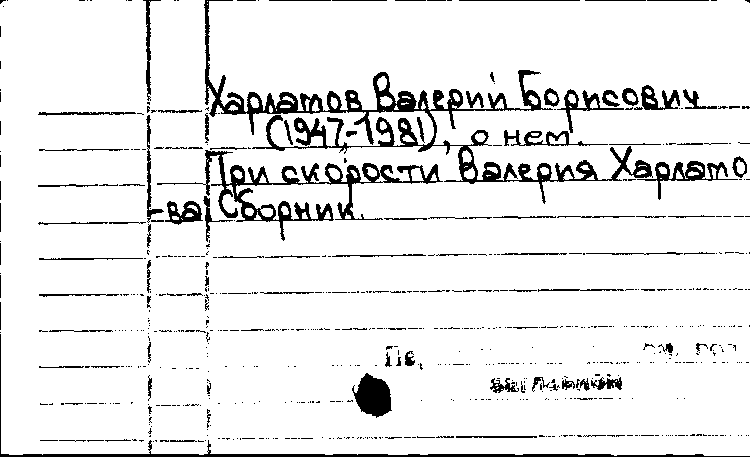 Харламов Валерий Борисович
(1947-1981), о нем.
Три скорости Валерия Харламо
-ва: Сборник.
Пе,
см.